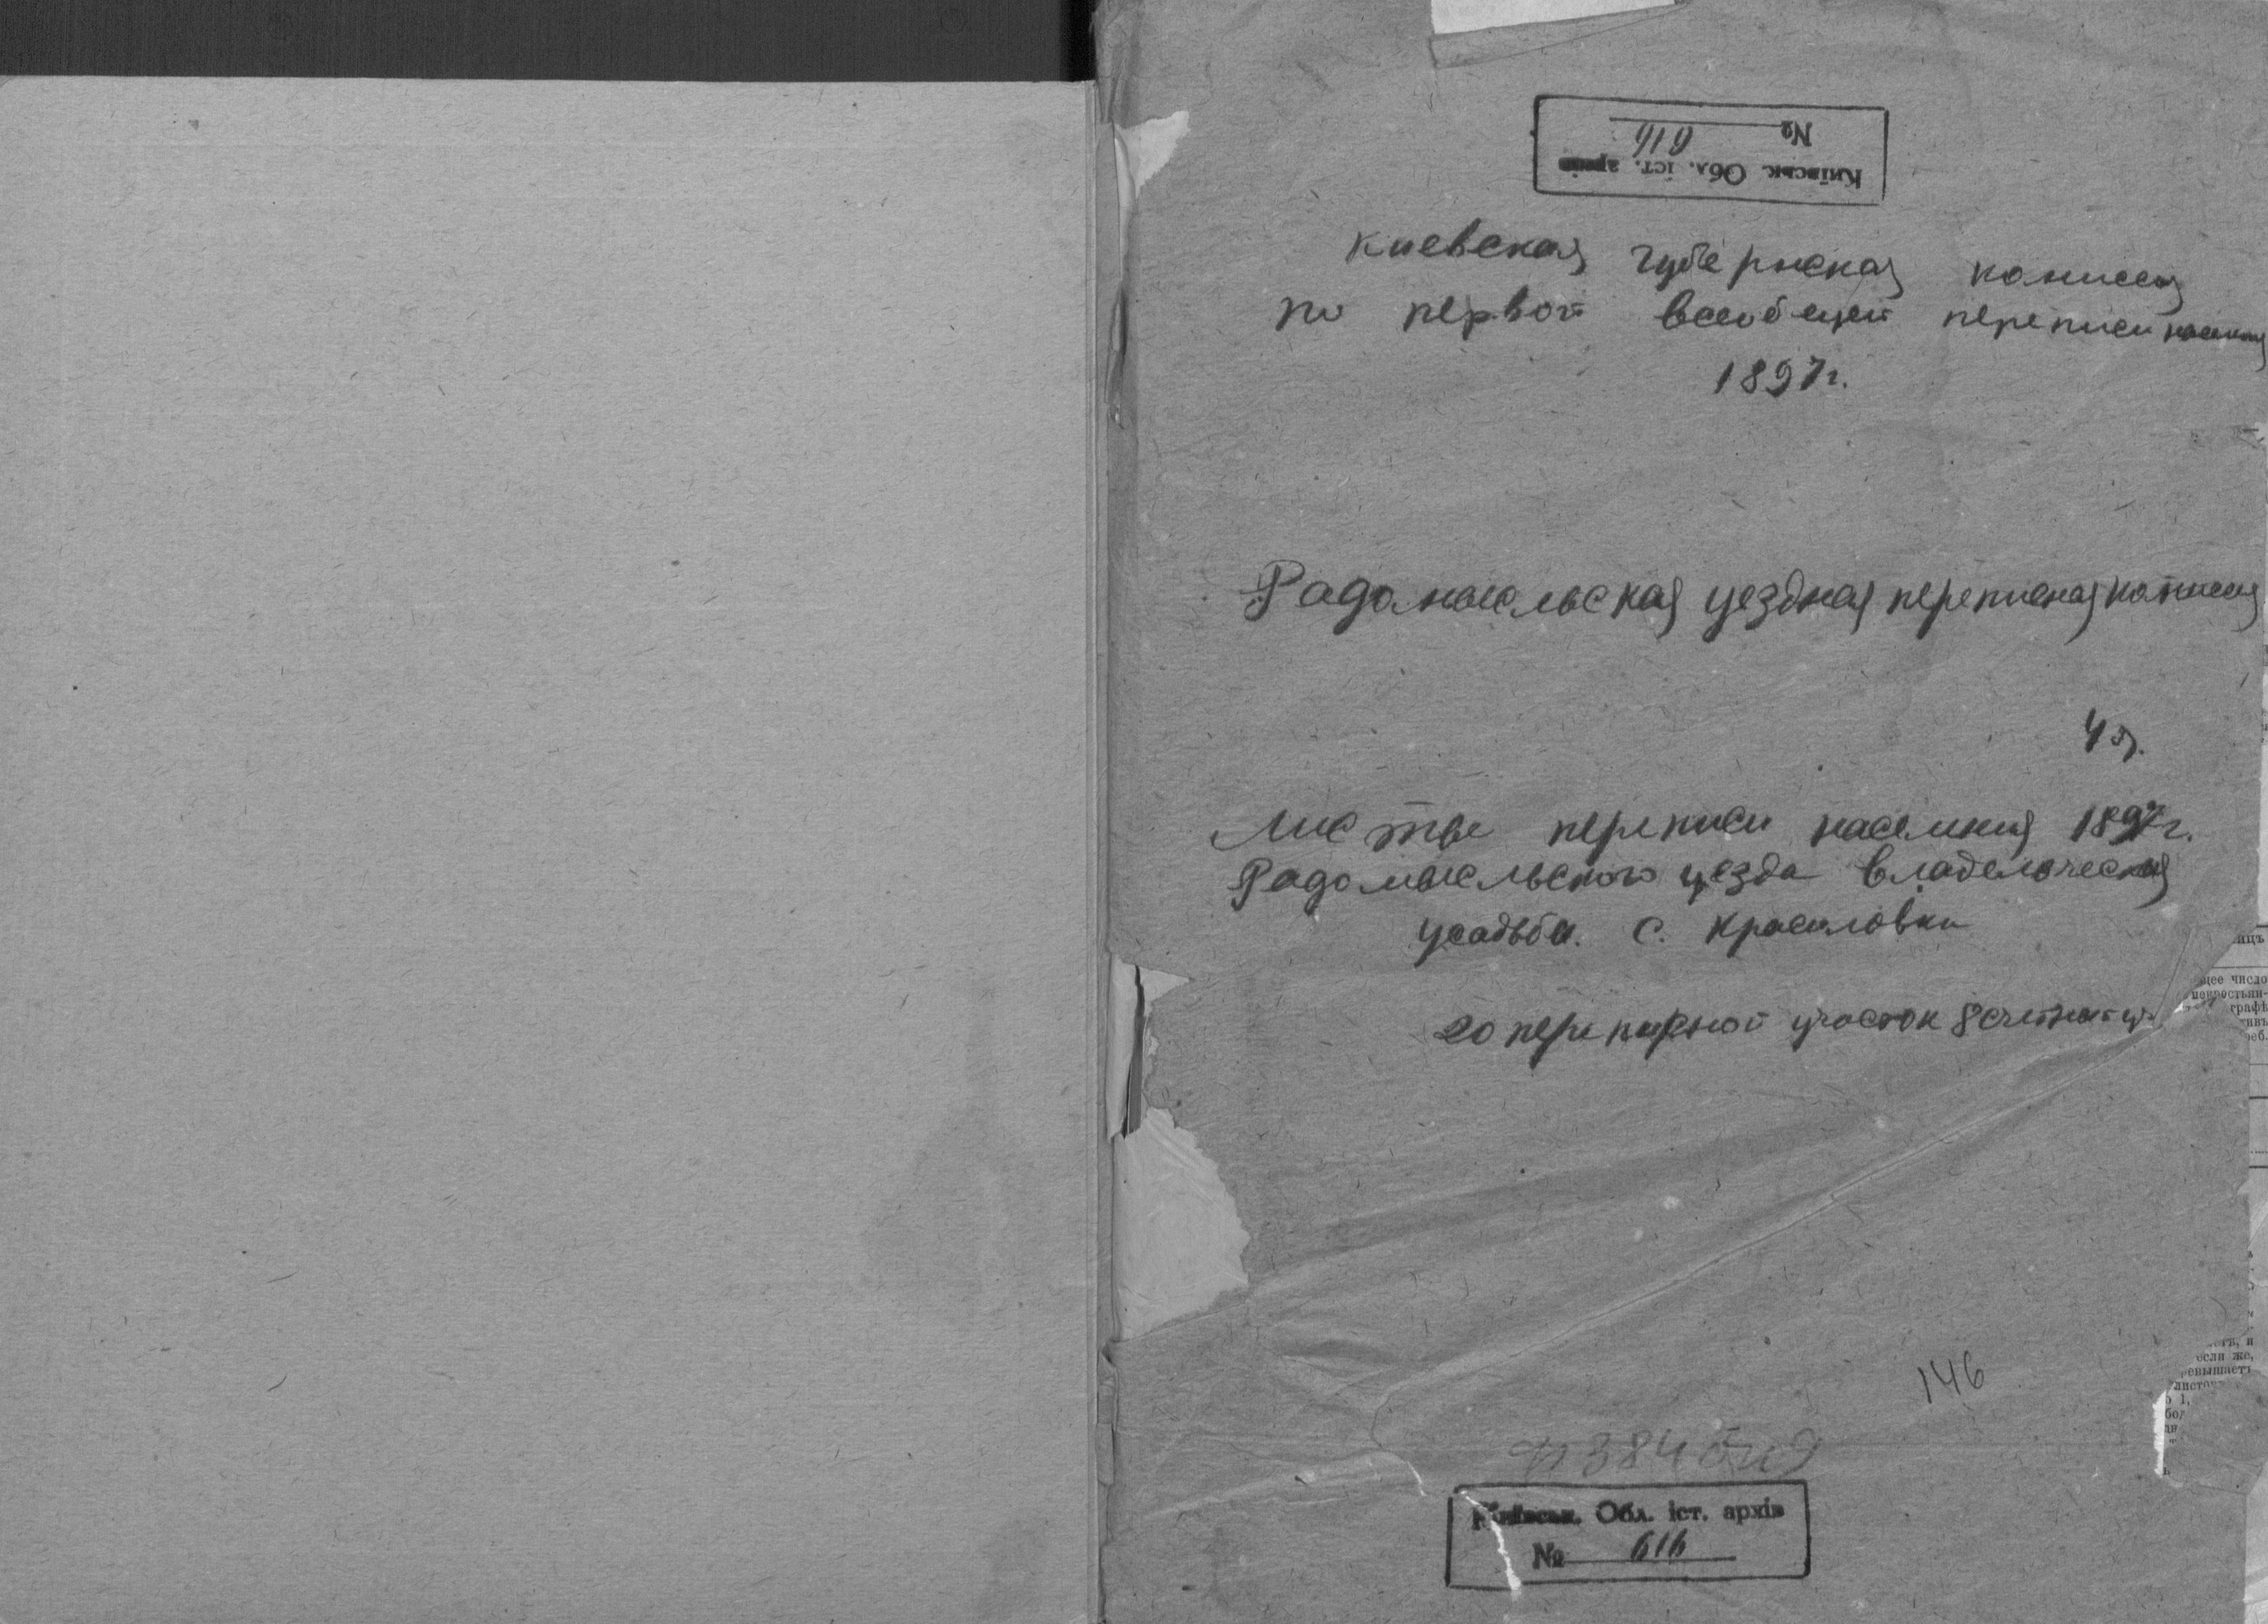 № 616
Київськ. Обл. іст. архів
Киевская губернская комисия
по первой всеобщей переписи населения
1897 г.
Радомысльская уездная переписная комисия
Листы переписи населения 1897 г.
Радомысльского уезда владельческая
усадьба. с. Красиловки
20 переписной участок 8 счетный уч
146
384 9
Київськ. Обл. іст. архів
№ 616
ицъ
щее число
графѣ
если же,